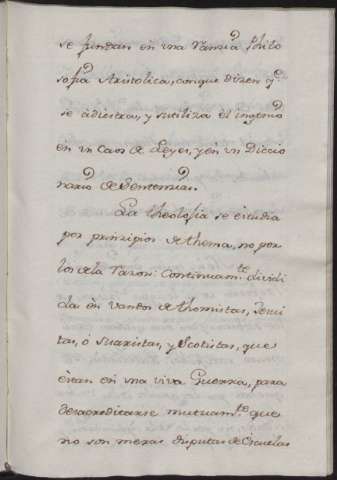 se fundan en una vana Philo
sofia Aristotelica, con que dizen q.e
se adiestra, y sutiliza el ingenio
en un Caos de Leyes, y en un Diccio
nario de Sentencias.
La theologia se estudia
por prinzipios de thema, no por
los de la razon: Continuam.te dividi
das en vandos de thomistas, Jesui
tas, ó Suaristas, y Scotistas, que
eran en una viva Guerra, para
desacreditarse mutuam.te que
no son meras disputas de Escuelas